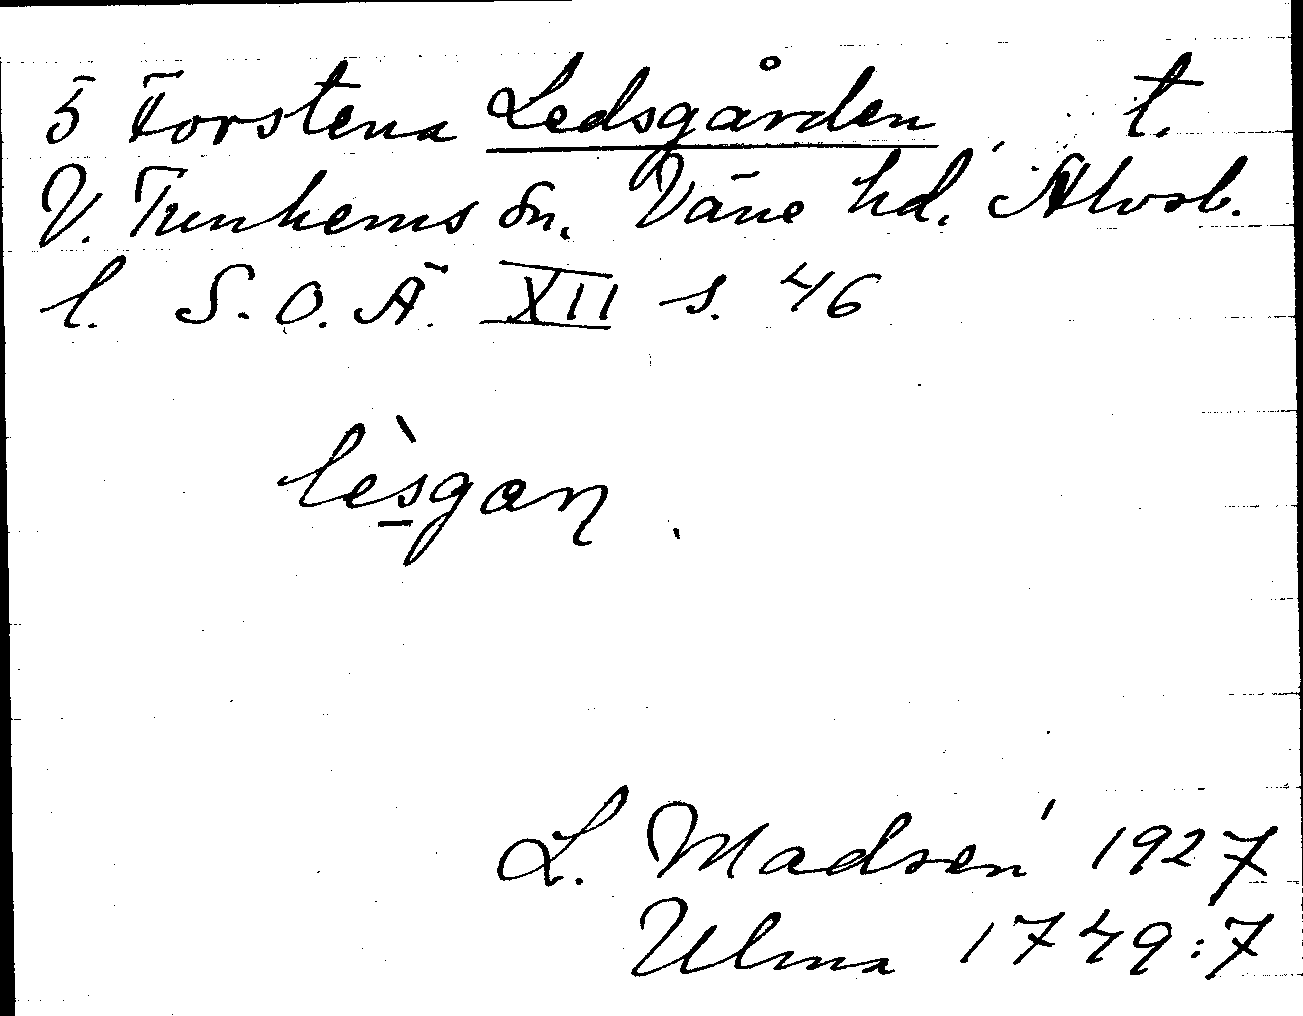 5 Forstena Ledsgården, t.
V. Tunhems sn. Väne hd. Älvsb.
l. S.O.Ä. XII s. 46
lèsgan.
L. Madsén 1927
Ulma 1749:7